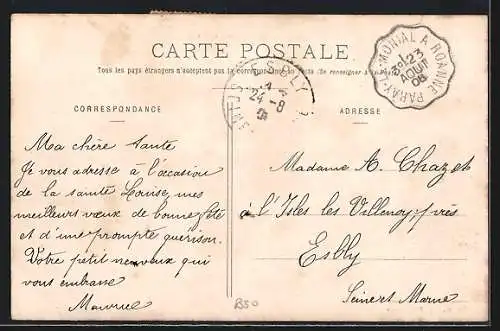 CARTE POSTALE
Tous les pays étrangers n'acceptent pas la correspondance au recto (Se renseigner à la
PARAY-L-MONIAL A ROANNE
23
AOUT
08
ESBLY
24 -8
CORRESPONDANCE
ADRESSE
Ma chère tante
Je vous adresse à l'occasion
de la sainte Louise, mes
meilleurs vœux de bonne fête
et d'une prompte guérison.
Votre petit neuveux qui
vous embrasse
Maurice
Madame A. Chazet
à l'Isles les Villenoy près
Esbly
Seine et Marne
B50